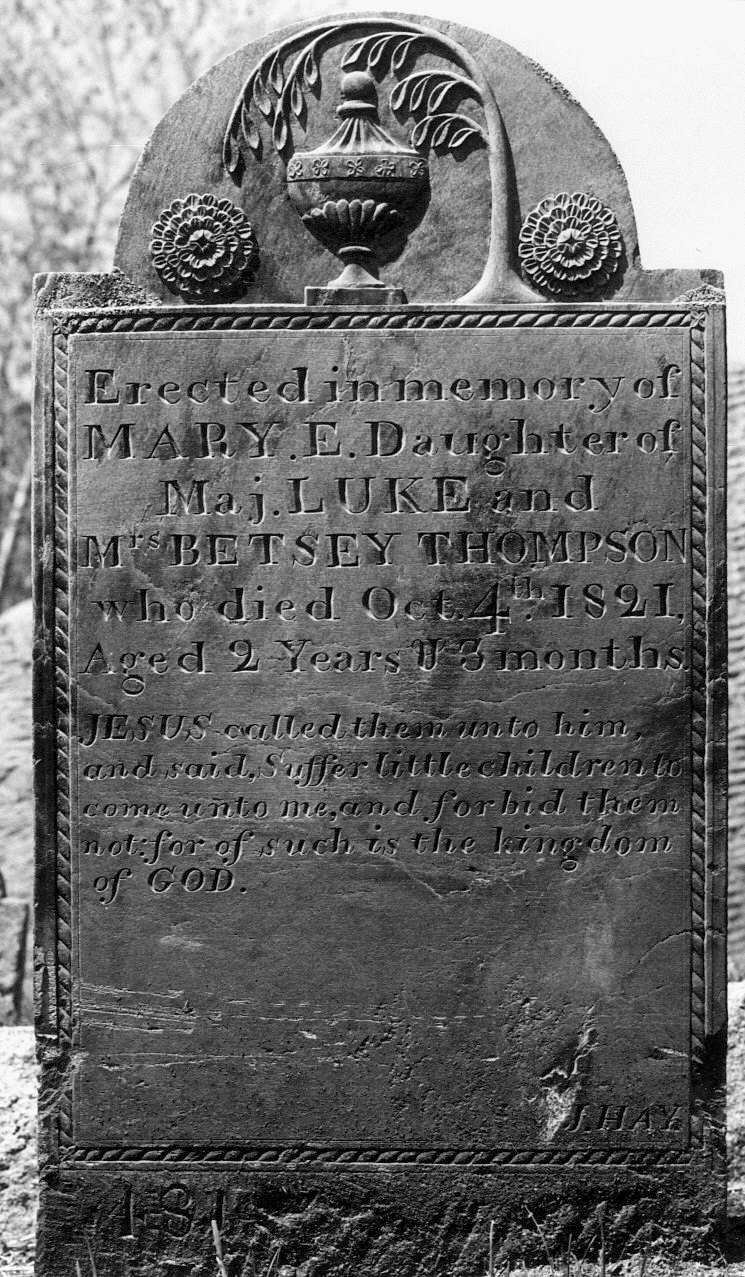 Erected in memory of
MARY. E. Daughter of
Maj. LUKE and
Mrs BETSEY THOMPSON
who died Oct. 4th. 1821,
Aged 2 Years & 3 months.
JESUS called them unto him,
and said, Suffer little children to
come unto me, and forbid them
not: for of such is the kingdom
of GOD.
J. HAY.